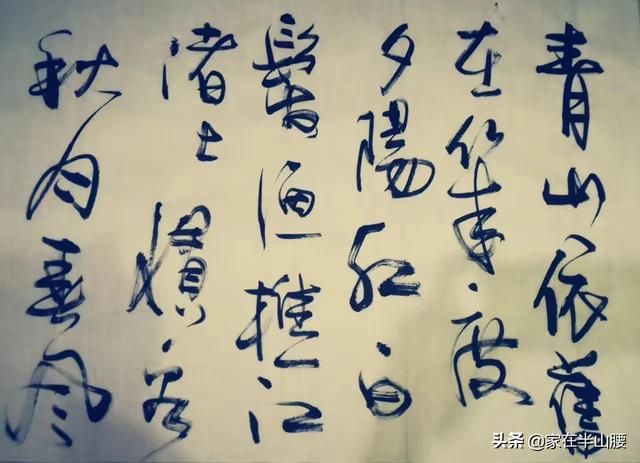 青山依舊
在幾度
夕陽紅白
髮漁樵江
渚上慣看
秋月春風
头条 @家在半山腰